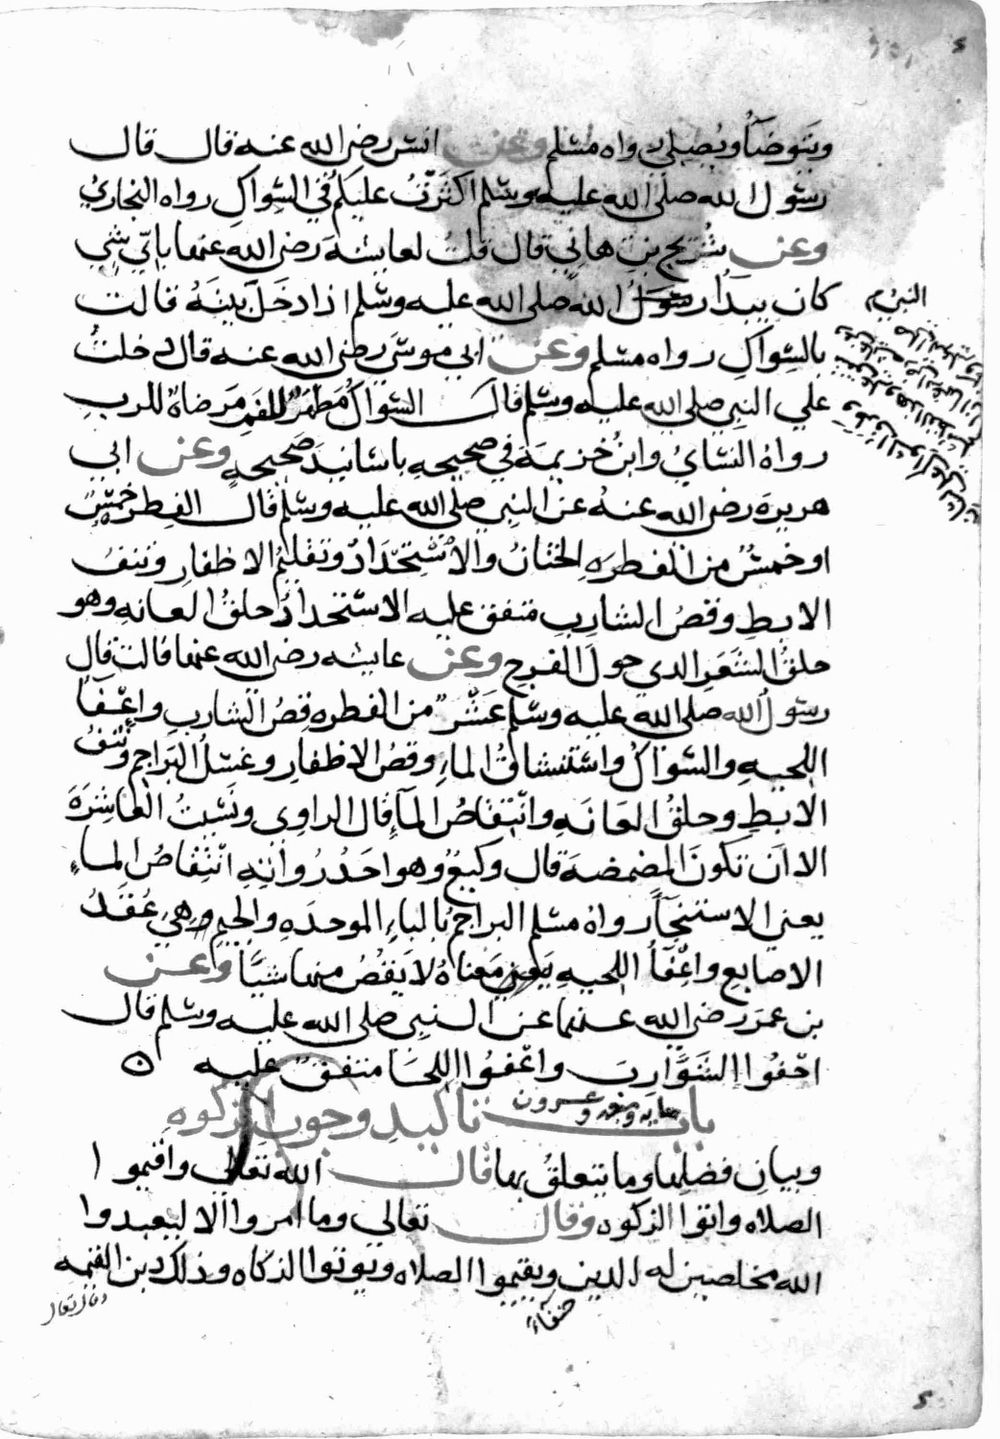 ويتوضا ويصلي رواه مسلم وعن انس رضي الله عنه قال قال
رسول الله صلى الله عليه وسلم اكثرت عليكم في السواك رواه البخاري
وعن شريح بن هاني قال قلت لعايشه رضي الله عنها باي شي
كان يبدا رسول الله صلى الله عليه وسلم اذا دخل بيته قالت
النبي
بالسواك رواه مسلم وعن ابي موسى رضي الله عنه قال دخلت
علي النبي صلى الله عليه وسلم قال السواك مطهرة للفم مرضاة للرب
رواه النساي وابن خزيمة في صحيحه باسانيد صحيحه وعن ابي
هريرة رضي الله عنه عن النبي صلى الله عليه وسلم قال الفطر خمس
او خمس من الفطره الختان والاستحداد وتقليم الاظفار ونتف
الابط وقص الشارب متفق عليه الاستحداد حلق العانه وهو
حلق الشعر الدي حول الفرج وعن عايشه رضي الله عنها قالت قال
رسول الله صلى الله عليه وسلم عشر من الفطره قص الشارب واعفا
اللحيه والسواك واستنشاق الماء وقص الاظفار وغسل البراجم ونتف
الابط وحلق العانه وانتقاص الماء قال الراوي ونسيت العاشرة
الا ان تكون المضمضة قال وكيع وهو احد رواته انتقاص الماء
يعني الاستنجآ رواه مسلم البراجم بالباء الموحده والجيم وهي عقد
الاصابع واعفآ اللحيه معناه لا يقص منها شيا وعن
بن عمر رضي الله عنهما عن النبي صلى الله عليه وسلم قال
احفوا الشوارب واعفوا اللحا متفق عليه ه
باب تاكيد وجوب الزكوه
وبيان فضلها وما يتعلق بها قال الله تعالى واقيموا
الصلاه واتوا الزكوه وقال تعالى وما امروا الا ليعبدوا
الله مخلصين له الدين ويقيموا الصلاه ويوتوا الزكاه وذلك دين القيمه
حنفآء
وقال تعالى